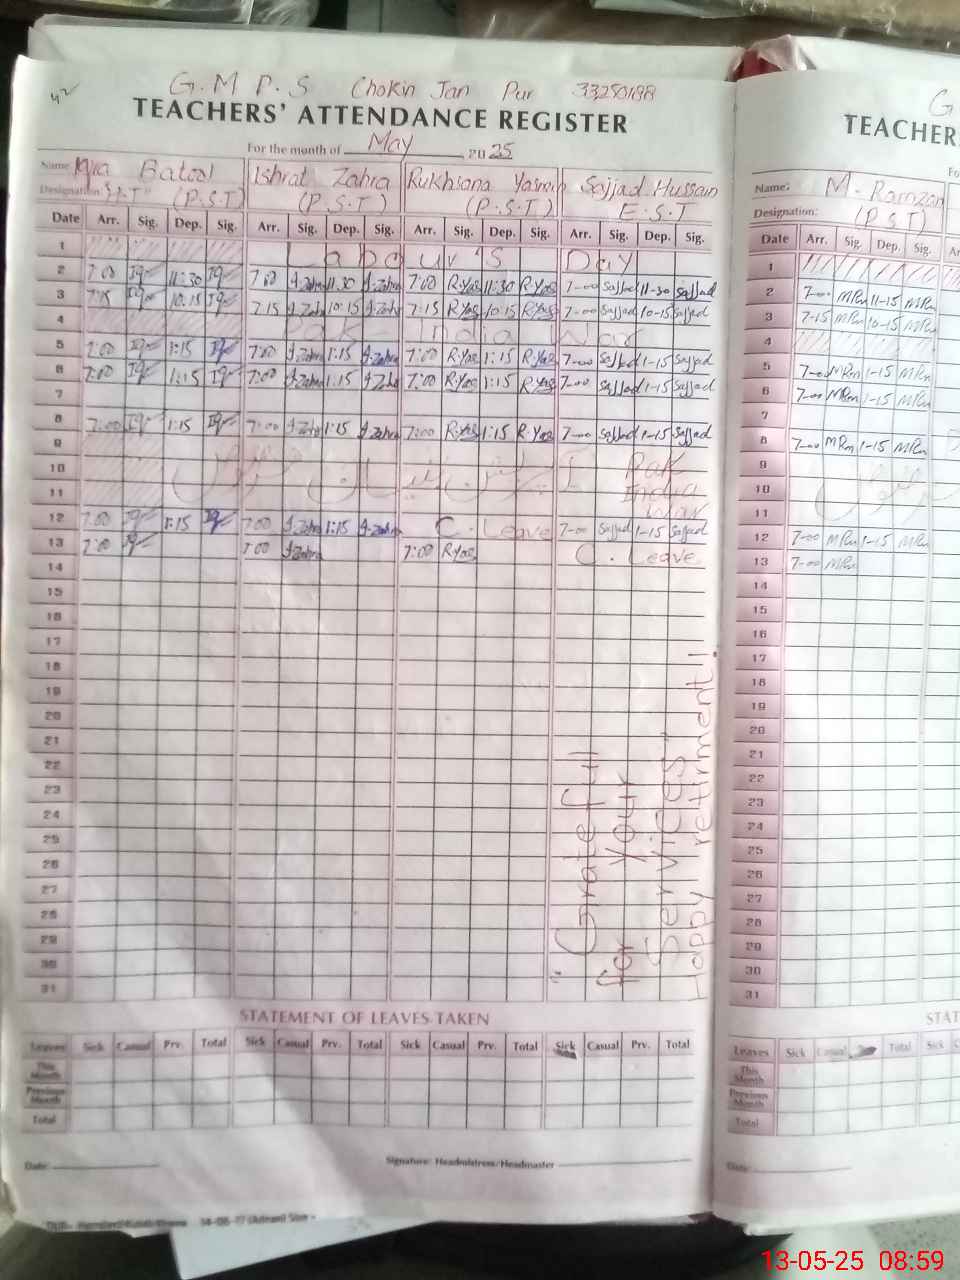 42
G.M P.S Chokin Jan Pur 33250188
TEACHERS' ATTENDANCE REGISTER
For the month of May, 2025
Name: Iqra Batool Ishrat Zahra Rukhsana Yasmin Sajjad Hussain
Designation: (P.S.T) (P.S.T) (P.S.T) E.S.T
Date Arr. Sig. Dep. Sig. Arr. Sig. Dep. Sig. Arr. Sig. Dep. Sig. Arr. Sig. Dep. Sig.
1 Labour's Day
2 7:00 Iq 11:30 Iq 7:00 I.Zahra 11:30 I.Zahra 7:00 R.Yas 11:30 R.Yas 7-00 Sajjad 11-30 Sajjad
3 7:15 Iq 10:15 Iq 7:15 I.Zahra 10:15 I.Zahra 7:15 R.Yas 10:15 R.Yas 7-00 Sajjad 10-15 Sajjad
4 Pak India War
5 7:00 Iq 1:15 Iq 7:00 I.Zahra 1:15 I.Zahra 7:00 R.Yas 1:15 R.Yas 7-00 Sajjad 1-15 Sajjad
6 7:00 Iq 1:15 Iq 7:00 I.Zahra 1:15 I.Zahr 7:00 R.Yas 1:15 R.Yas 7-00 Sajjad 1-15 Sajjad
7
8 7:00 Iq 1:15 Iq 7:00 I.Zahr 1:15 I.Zahra 7:00 R.Yas 1:15 R.Yas 7-00 Sajjad 1-15 Sajjad
9
10 Pak
11 India
War
12 7:00 Iq 1:15 Iq 7:00 I.Zahra 1:15 I.Zahra C. Leave 7-00 Sajjad 1-15 Sajjad
13 7:00 Iq 7:00 I.Zahra 7:00 R.Yas C. Leave
14
15
16
17
18
19
20
21
22
23
24
25
26
27
28
29
30
31
"Grateful
For Your
Services"
Happy retirment!
STATEMENT OF LEAVES TAKEN
Leaves Sick Casual Prv. Total Sick Casual Prv. Total Sick Casual Prv. Total Sick Casual Prv. Total
This Month
Previous Month
Total
Date: Signature: Headmistress/Headmaster
G
TEACHER
Fo
Name: M. Ramzan
Designation: (P S T)
Date Arr. Sig. Dep. Sig.
1
2 7-00 MRm 11-15 MRm
3 7-15 MRm 10-15 MRm
4
5 7-00 MRm 1-15 MRm
6 7-00 MRm 1-15 MRm
7
8 7-00 MRm 1-15 MRm
9
10
11
12 7-00 MRm 1-15 MRm
13 7-00 MRm
14
15
16
17
18
19
20
21
22
23
24
25
26
27
28
29
30
31
STAT
Leaves Sick Casual Total Sick C
This Month
Previous Month
Total
Date:
13-05-25 08:59